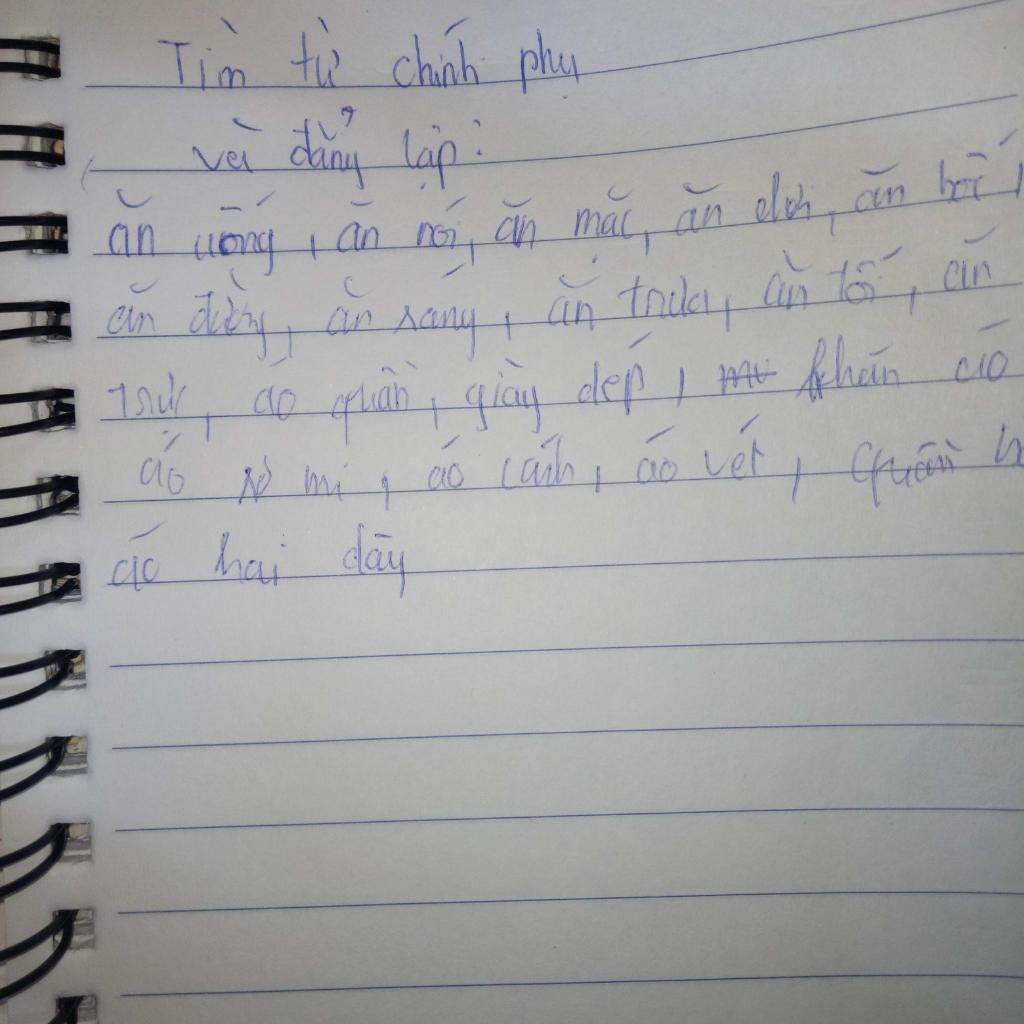 Tìm từ chính phụ
và đẳng lập:
ăn uống, ăn nói, ăn mặc, ăn chơi, ăn bốc,
ăn đường, ăn sáng, ăn trưa, ăn tối, ăn
áo quần, giày dép, khăn áo
áo sơ mi, áo cánh, áo vét, quần
áo hai dây